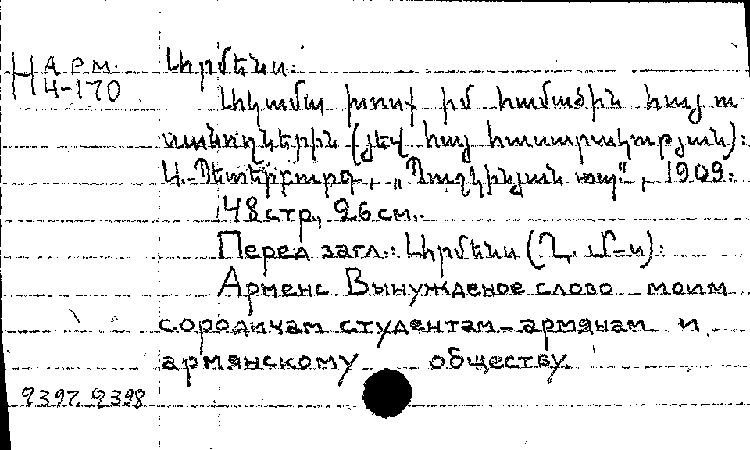 Нарм. Արմենս.
4-170
Ակամա խոսք իմ համածին հայ ու
սանողներին (յեվ հայ հասարակության):
Ս.-Պետերբուրգ, „Պուշկինյան տպ", 1909.
148стр, 26см.
Перед загл.: Արմենս (Ղ. Մ-ս):
Арменс Вынужденое слово моим
сородичам студентам-армянам и
армянскому обществу.
9397 9398